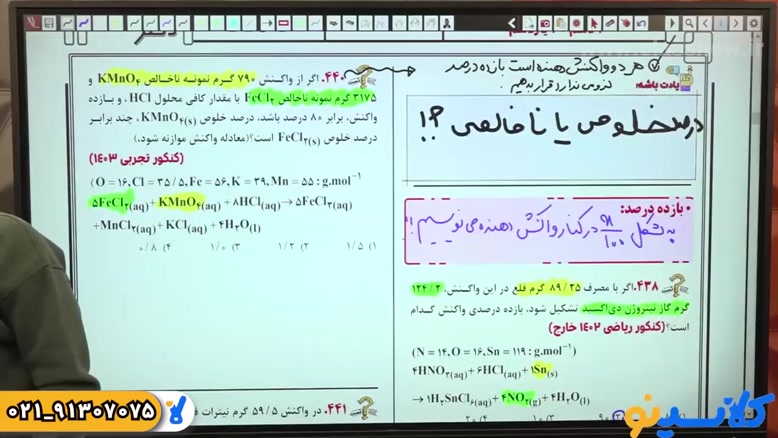 هر دو واکنش‌هنده است بازده درصد
یادت باشه:
لزومی ندارد قرار بدهیم.
درصد خلوص یا ناخالصی ؟!
• بازده درصد:
به شکل x/100 در کنار واکنش دهنده می‌نویسیم !!
۴۳۸. اگر با مصرف ۸۹/۲۵ گرم قلع در این واکنش، ۱۲۴/۲
گرم گاز نیتروژن دی‌اکسید تشکیل شود، بازده درصدی واکنش کدام
است؟ (کنکور ریاضی ۱۴۰۲ خارج)
(N = ۱۴, O = ۱۶, Sn = ۱۱۹ : g.mol⁻¹)
۴HNO۳(aq) + ۶HCl(aq) + ۱Sn(s)
→ ۱H۲SnCl۶(aq) + ۴NO۲(g) + ۴H۲O(l)
۴۴۰. اگر از واکنش ۷۹۰ گرم نمونه ناخالص KMnO۴ و
۳۱۷۵ گرم نمونه ناخالص FeCl۲ با مقدار کافی محلول HCl، و بازده
واکنش، برابر ۸۰ درصد باشد، درصد خلوص KMnO۴(s)، چند برابر
درصد خلوص FeCl۲(s) است؟ (معادله واکنش موازنه شود.)
(کنکور تجربی ۱۴۰۳)
(O = ۱۶, Cl = ۳۵/۵, Fe = ۵۶, K = ۳۹, Mn = ۵۵ : g.mol⁻¹)
۵FeCl۲(aq) + KMnO۴(aq) + ۸HCl(aq) → ۵FeCl۳(aq)
+ MnCl۲(aq) + KCl(aq) + ۴H۲O(l)
۱) ۱/۵ ۲) ۱/۲ ۳) ۱/۰ ۴) ۰/۸
۴۴۱. در واکنش ۵۹/۵ گرم نیترات
۰۲۱_۹۱۳۰۷۰۷۵
کلاسینو